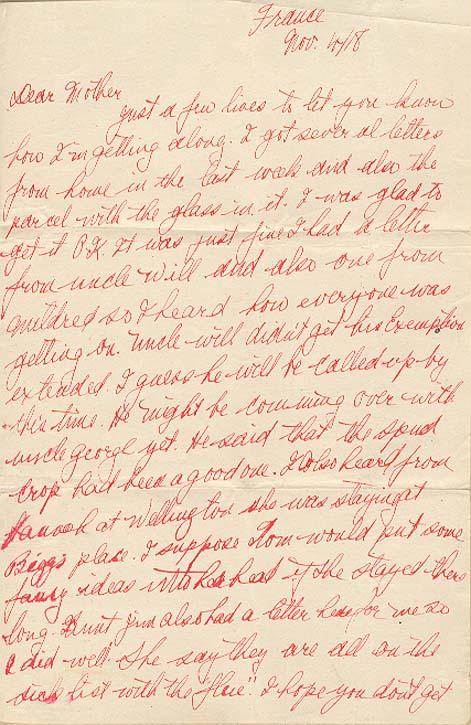 France
Nov. 4/18
Dear Mother
just a few lines to let you know
how I'm getting along. I got several letters
from home in the last week and also the
parcel with the glass in it. I was glad to
get it O.K. It was just fine I had a letter
from uncle Will and also one from
muldred so I heard how everyone was
getting on. Uncle will didn't get his Exemption
extended. I guess he will be called up by
this time. He might be comming over with
uncle george yet. He said that the spud
crop had been a good one. I also heard from
at Wellington she was staying at
Biggs place. I suppose would put some
ideas into her head if she stayed there
long. Aunt also had a letter here for me so
I did well. She say they are all on the
sick list with the "flue". I hope you don't get